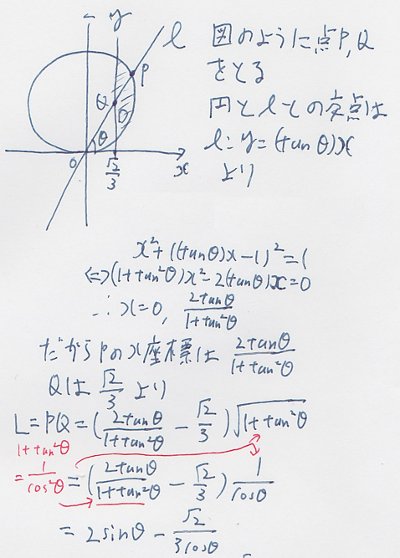 y
l
P
Q
θ
θ
O
√2/3
x
図のように点P,Q
をとる
円とlとの交点は
l: y=(tanθ)x
より
x²+((tanθ)x-1)²=1
⇔(1+tan²θ)x²-2(tanθ)x=0
∴x=0, 2tanθ/1+tan²θ
だからPのx座標は 2tanθ/1+tan²θ
Qは √2/3 より
L=PQ=(2tanθ/1+tan²θ - √2/3)√1+tan²θ
1+tan²θ
=1/cos²θ
=(2tanθ/1+tan²θ - √2/3) 1/cosθ
=2sinθ- √2/3cosθ